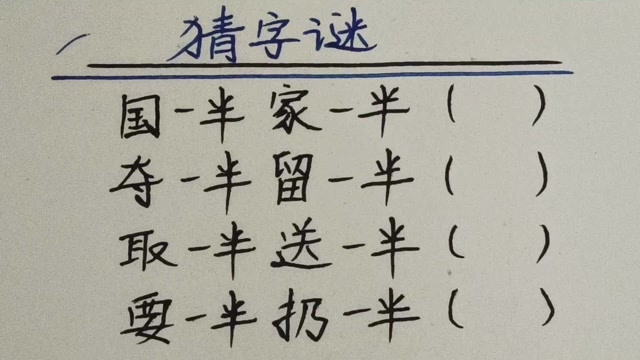 猜字谜
国一半家一半( )
夺一半留一半( )
取一半送一半( )
要一半扔一半( )